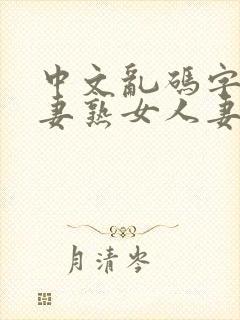 中文乱码字
妻熟女人妻
月清岑